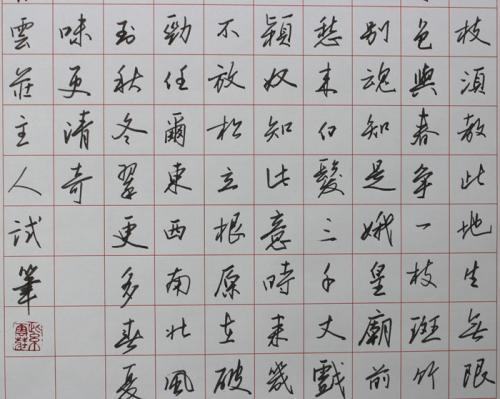 枝須教此地生無限
色與春爭一枝斑竹
別魂知是娥皇廟前
愁来白髮三千丈戲
穎奴知此意時来幾
不放松立根原在破
勁任爾東西南北風
到秋冬翠更多春夏
味更清奇
雲莊主人試筆